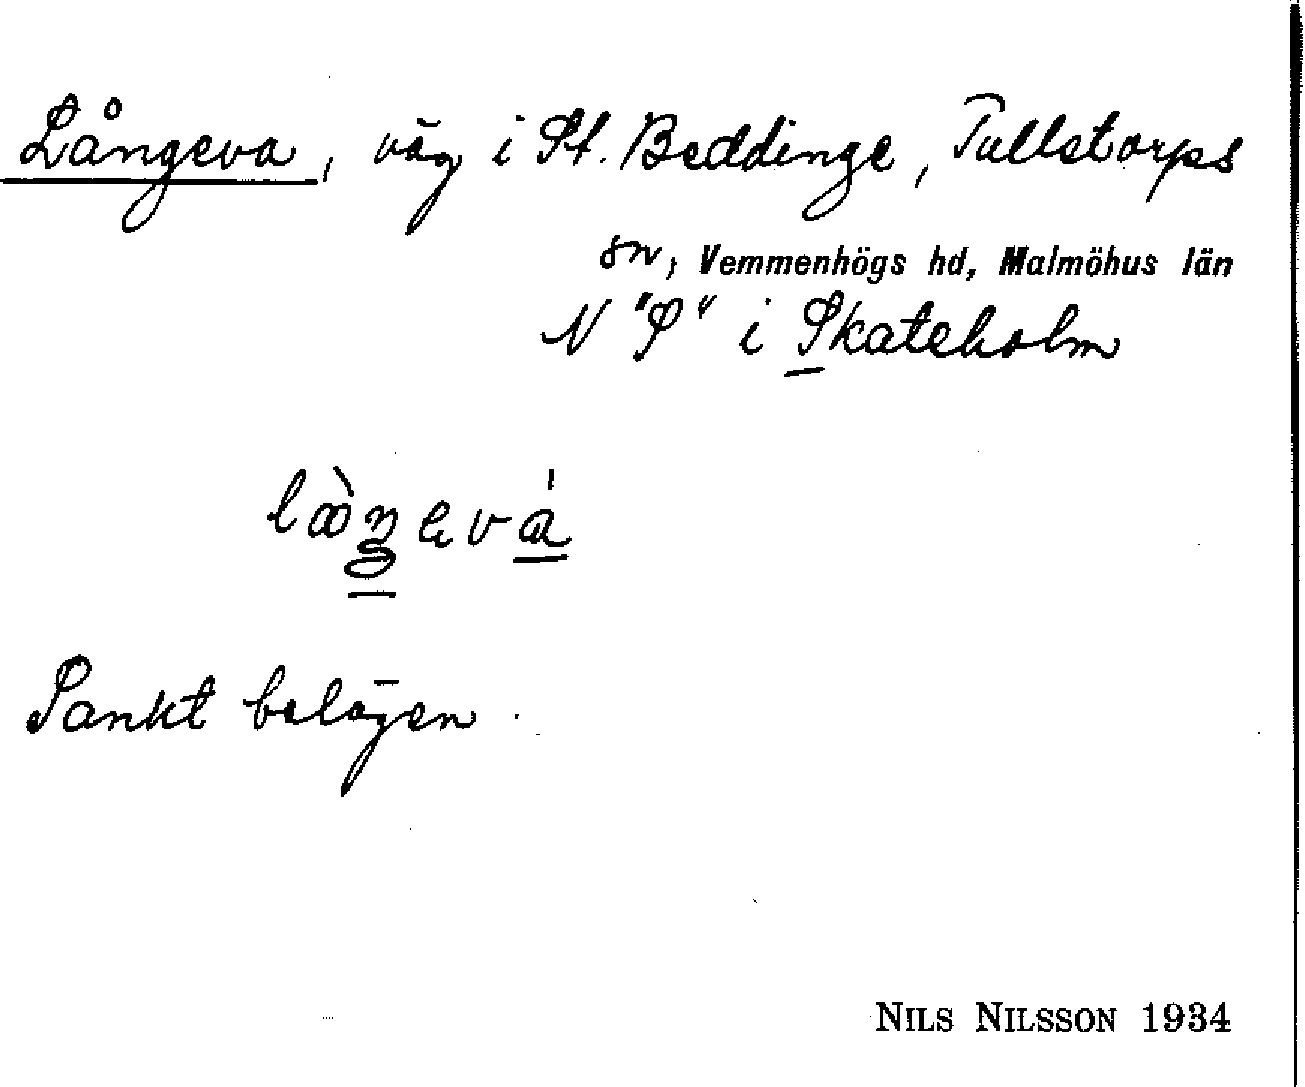 Långeva, väg i St. Beddinge, Tullstorps
sn, Vemmenhögs hd, Malmöhus län
N "S" i Skateholm
Sankt belägen.
NILS NILSSON 1934